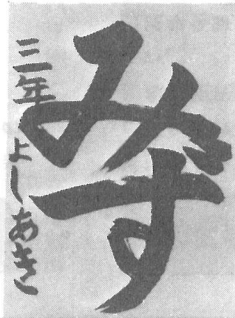 みず
三年 よしあき